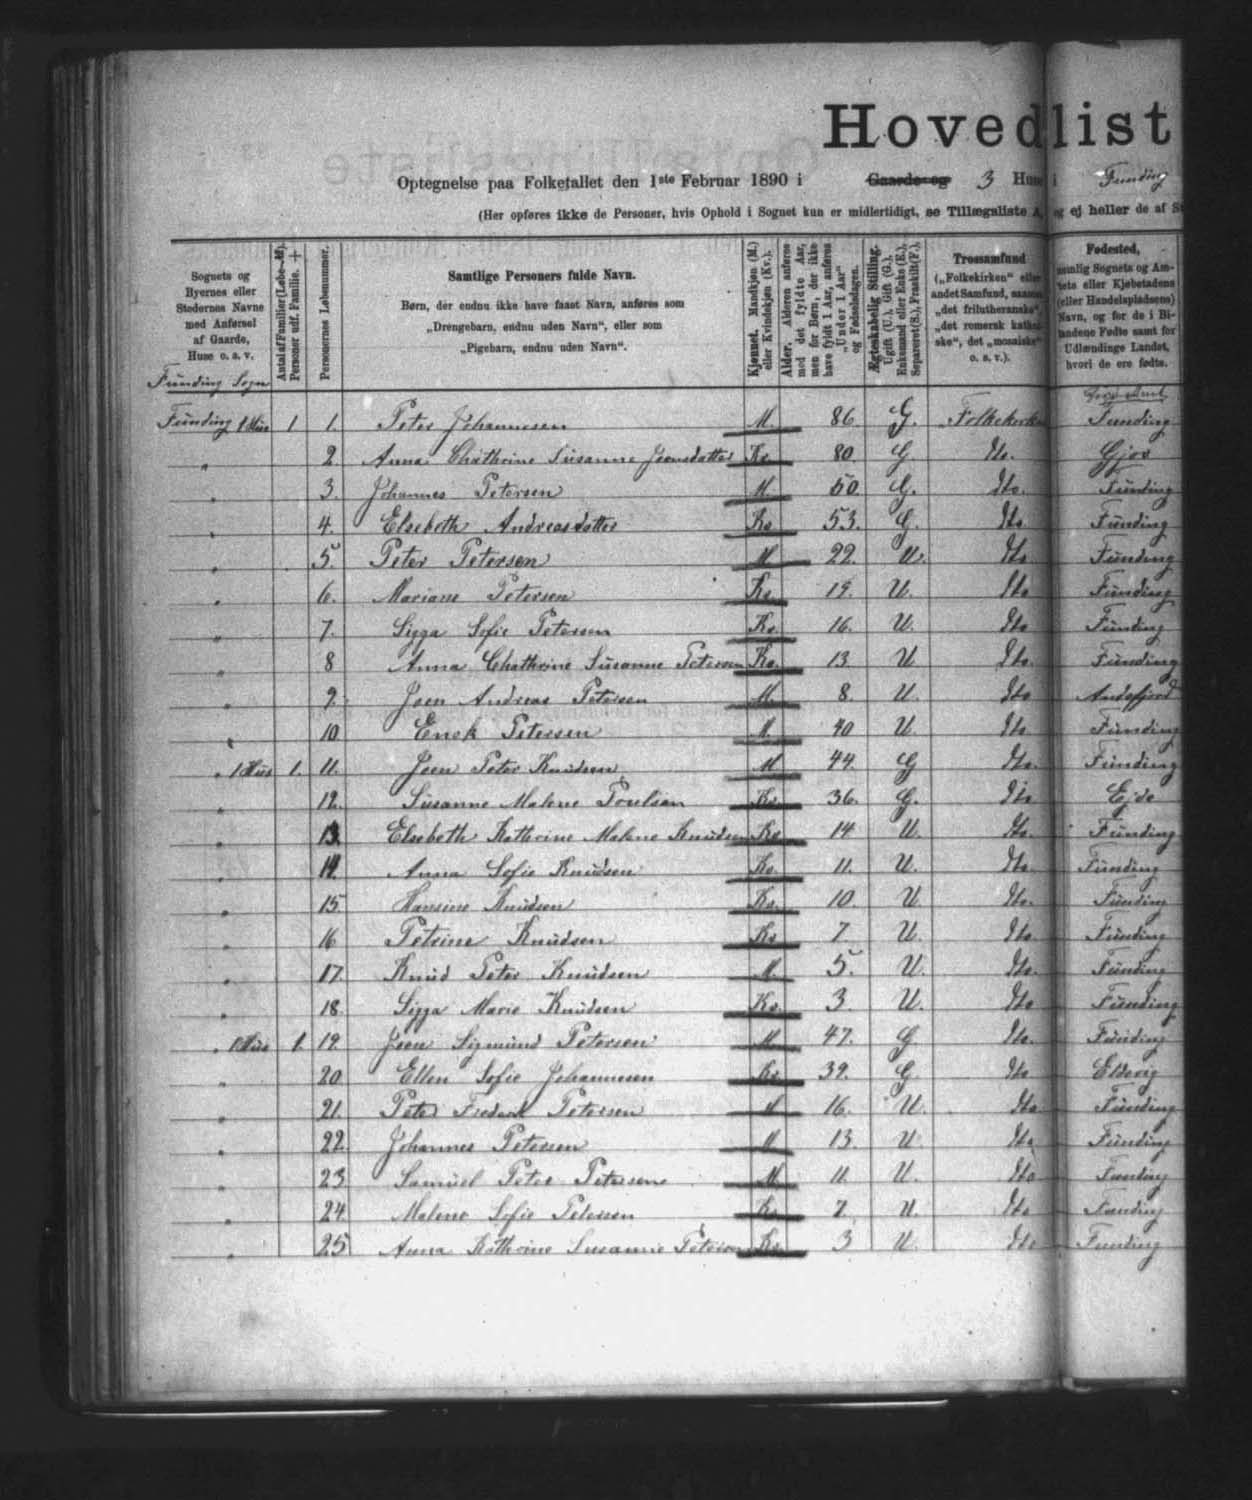 Hovedlist
Optegnelse paa Folketallet den 1ste Februar 1890 i Gaarde og 3 Huse i Funding
(Her opføres ikke de Personer, hvis Ophold i Sognet kun er midlertidigt, se Tillægsliste A, og ej heller de af
Sognets og Byernes eller Stedernes Navne med Anførsel af Gaarde, Huse o. s. v.
Funding Sogn
Antal af Familier (Løbe-№). Personer udf. Familie. +
Personernes Løbenummer.
Samtlige Personers fulde Navn.
Børn, der endnu ikke have faaet Navn, anføres som
„Drengebarn, endnu uden Navn“, eller som
„Pigebarn, endnu uden Navn“.
Kjønnet. Mandkjøn (M.) eller Kvindekjøn (Kv.).
Alder. Alderen anføres med det fyldte Aar, men for Børn, der ikke have fyldt 1 Aar, anføres „Under 1 Aar“ og Fødselsdagen.
Ægteskabelig Stilling. Ugift (U.), Gift (G.), Enkemand eller Enke (E.), Separeret (S.), Fraskilt (F.).
Trossamfund („Folkekirken“ eller andet Samfund, saasom „det frilutheranske“, „det romersk katholske“, det „mosaiske“ o. s. v.).
Fødested, nemlig Sognets og Amtets eller Kjøbstadens (eller Handelspladsens) Navn, og for de i Bilandene Fødte samt for Udlændinge Landet, hvori de ere fødte.
Funding 1 Hus 1 1. Peter Johannesen M. 86. G. Folkekirken Funding
" 2. Anna Chathrine Susanne Joensdatter Kv. 80 G. Do. Gjov
" 3. Johannes Petersen M. 50. G. Do. Funding
" 4. Elsebeth Andreasdatter Kv 53. G. Do Funding
" 5. Peter Petersen M 22. U. Do Funding
" 6. Mariane Petersen Kv. 19. U. Do Funding
" 7. Sigga Sofie Petersen Kv. 16. U. Do Funding
" 8 Anna Chathrine Susanne Petersen Kv. 13 U Do. Funding
" 9. Joen Andreas Petersen M. 8. U. Do Andefjord
" 10 Enok Petersen M. 40 U. Do Funding
" 1 Hus 1. 11. Joen Peter Knudsen M 44. G Do. Funding
" 12. Susanne Malene Poulsen Kv. 36. G. Do Ejde
" 13. Elsebeth Kathrine Malene Knudsen Kv. 14 U. Do. Funding
" 14. Anna Sofie Knudsen Kv. 11. U. Do. Funding
" 15. Hansine Knudsen Kv. 10. U Do. Funding
" 16 Petrine Knudsen Kv 7 U. Do. Funding
" 17. Knud Peter Knudsen M. 5. U. Do. Funding
" 18. Sigga Marie Knudsen Kv. 3 U. Do Funding
" 1 Hus 1. 19. Joen Sigmund Petersen M 47. G Do. Funding
" 20 Ellen Sofie Johannesen Kv. 39. G. Do Eldevig
" 21. Peter Frederik Petersen M 16. U. Do Funding
" 22. Johannes Petersen M 13. U Do Funding
" 23 Samuel Peter Petersen M 11 U. Do Funding
" 24. Malene Sofie Petersen Kv. 7. U. Do Funding
" 25 Anna Kathrine Susanne Petersen Kv. 3 U. Do Funding